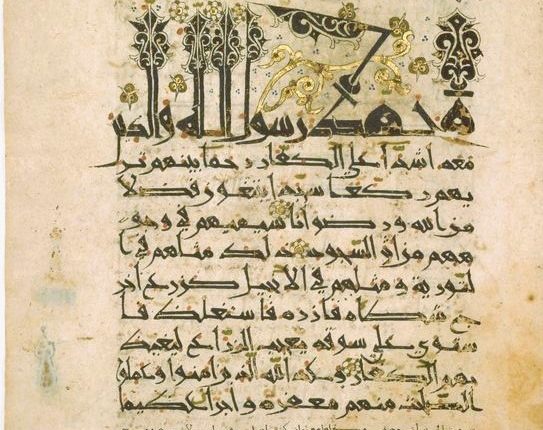 محمد رسول الله والذين
معه اشدا على الكفار رحما بينهم تر
يهم ركعا سجدا يبتغون فضلا
من الله ورضوانا سيميهم في وجو
ههم من اثر السجود ذلك مثلهم في ا
لتورية ومثلهم في الانجيل كزرع اخر
ج شطاه فازره فاستغلظ فا
ستوى على سوقه يعجب الزراع ليغيظ
بهم الكفار وعد الله الذين امنوا وعملوا
الصلحت منهم مغفرة واجرا عظيما